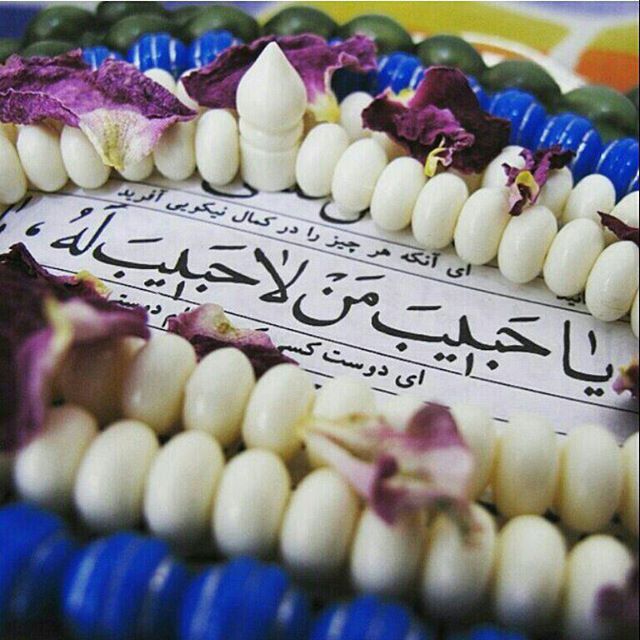 ای آنکه هر چیز را در کمال نیکویی آفرید
یا حَبیبَ مَنْ لا حَبیبَ لَهُ،
ای دوست کسی